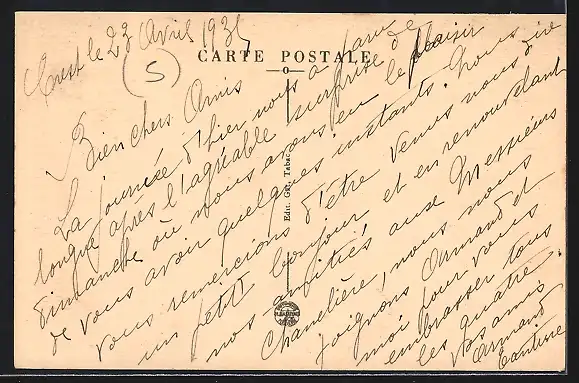 Crest le 23 Avril 1935
(5)
CARTE POSTALE
Bien chers Amis
La journée d'hier nous a paru
longue après l'agréable surprise de
dimanche où nous avons eu le plaisir
de vous avoir quelques instants. Nous
vous remercions d'être venus nous dire
un petit bonjour et en renouvelant
nos amitiés aux Messieurs
Chanelière, nous nous
joignons Armand et
moi pour vous
embrasser tous
les quatre.
Vos amis
Armand
Edit. Gal. Tabac